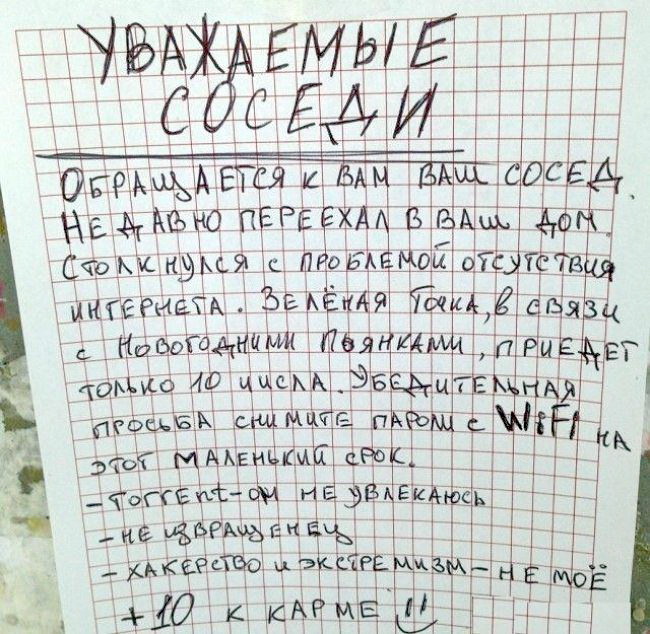 УВАЖАЕМЫЕ
СОСЕДИ
ОБРАЩАЕТСЯ К ВАМ ВАШ СОСЕД.
НЕДАВНО ПЕРЕЕХАЛ В ВАШ ДОМ.
СТОЛКНУЛСЯ С ПРОБЛЕМОЙ ОТСУТСТВИЯ
ИНТЕРНЕТА. ЗЕЛЁНАЯ ТОЧКА, В СВЯЗИ
С НОВОГОДНИМИ ПЬЯНКАМИ, ПРИЕДЕТ
ТОЛЬКО 10 ЧИСЛА. УБЕДИТЕЛЬНАЯ
ПРОСЬБА СНИМИТЕ ПАРОЛИ С WiFi НА
ЭТОТ МАЛЕНЬКИЙ СРОК.
- ТОrrEnt-ОМ НЕ УВЛЕКАЮСЬ
- НЕ ИЗВРАЩЕНЕЦ
- ХАКЕРСТВО И ЭКСТРЕМИЗМ - НЕ МОЁ
+10 К КАРМЕ